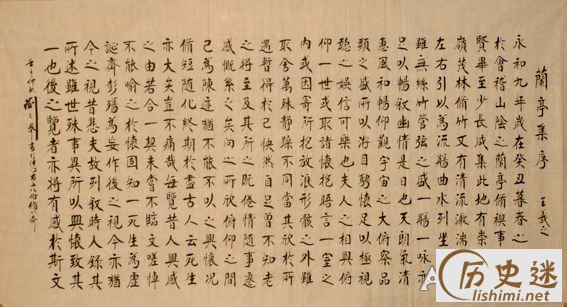 蘭亭集序 王羲之
永和九年歲在癸丑暮春之
於會稽山陰之蘭亭脩稧事
賢畢至少長咸集此地有崇
嶺茂林脩竹又有清流激湍
左右引以為流觴曲水列坐
雖無絲竹管弦之盛一觴一詠亦
足以暢叙幽情是日也天朗氣清
惠風和暢仰觀宇宙之大俯察品
類之盛所以遊目騁懷足以極視
聽之娛信可樂也夫人之相與俯
仰一世或取諸懷抱晤言一室之
內或因寄所托放浪形骸之外雖
取舍萬殊靜躁不同當其欣於所
遇暫得於己快然自足曾不知老
之將至及其所之既倦情隨事遷
感慨係之矣向之所欣俯仰之間
已為陳迹猶不能不以之興懷況
脩短隨化終期於盡古人云死生
亦大矣豈不痛哉每覽昔人興感
之由若合一契未嘗不臨文嗟悼
不能喻之於懷固知一死生為虛
誕齊彭殤為妄作後之視今亦猶
今之視昔悲夫故列叙時人錄其
所述雖世殊事異所以興懷致其
一也後之覽者亦將有感於斯文
历史迷
lishimi.net